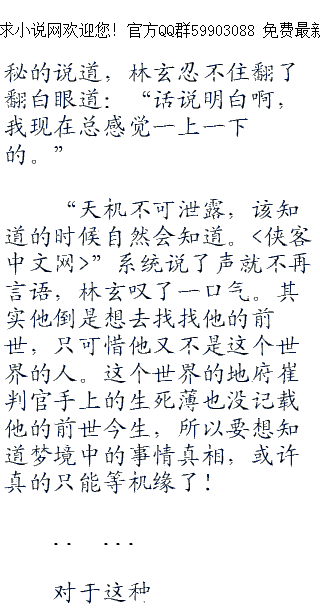 求小说网欢迎您! 官方QQ群59903088 免费最新
秘的说道，林玄忍不住翻了
翻白眼道：“话说明白啊，
我现在总感觉一上一下
的。”
“天机不可泄露，该知
道的时候自然会知道。<侠客
中文网>”系统说了声就不再
言语，林玄叹了一口气。其
实他倒是想去找找他的前
世，只可惜他又不是这个世
界的人。这个世界的地府崔
判官手上的生死薄也没记载
他的前世今生，所以要想知
道梦境中的事情真相，或许
真的只能等机缘了！
．．　．．．
对于这种